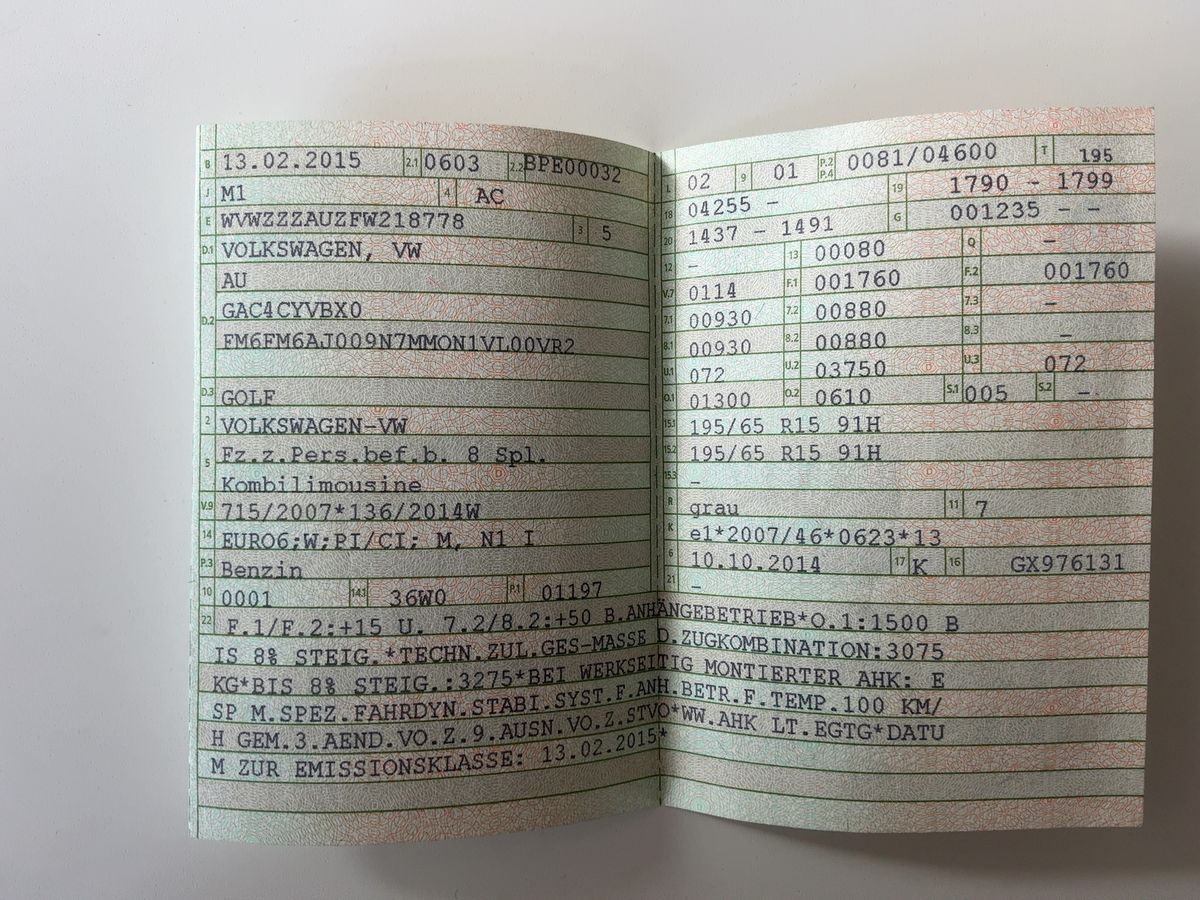 B 13.02.2015 2.1 0603 2.2 BPE00032
J M1 4 AC
E WVWZZZAUZFW218778 3 5
D.1 VOLKSWAGEN, VW
AU
D.2 GAC4CYVBX0
FM6FM6AJ009N7MMON1VL00VR2
D.3 GOLF
2 VOLKSWAGEN-VW
5 Fz.z.Pers.bef.b. 8 Spl.
Kombilimousine
V.9 715/2007*136/2014W
14 EURO6;W;PI/CI; M, N1 I
P.3 Benzin
10 0001 14.1 36W0 P.1 01197
L 02 9 01 P.2 P.4 0081/04600 T 195
18 04255 - 19 1790 - 1799
20 1437 - 1491 G 001235 - -
12 - 13 00080 Q -
V.7 0114 F.1 001760 F.2 001760
7.1 00930 7.2 00880 7.3 -
8.1 00930 8.2 00880 8.3 -
U.1 072 U.2 03750 U.3 072
O.1 01300 O.2 0610 S.1 005 S.2 -
15.1 195/65 R15 91H
15.2 195/65 R15 91H
15.3 -
R grau 11 7
K e1*2007/46*0623*13
6 10.10.2014 17 K 16 GX976131
21 -
22 F.1/F.2:+15 U. 7.2/8.2:+50 B.ANHÄNGEBETRIEB*O.1:1500 B
IS 8% STEIG.*TECHN.ZUL.GES-MASSE D.ZUGKOMBINATION:3075
KG*BIS 8% STEIG.:3275*BEI WERKSEITIG MONTIERTER AHK: E
SP M.SPEZ.FAHRDYN.STABI.SYST.F.ANH.BETR.F.TEMP.100 KM/
H GEM.3.AEND.VO.Z.9.AUSN.VO.Z.STVO*WW.AHK LT.EGTG*DATU
M ZUR EMISSIONSKLASSE: 13.02.2015*